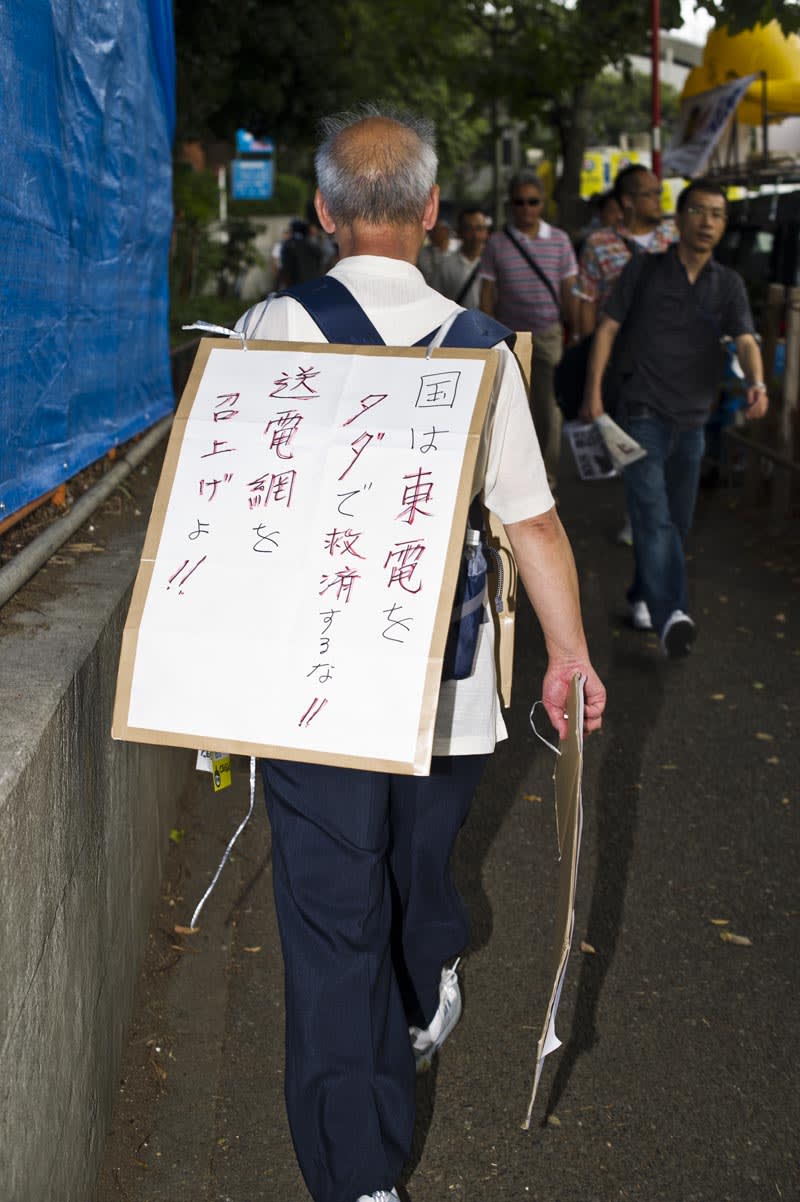 国は東電を
タダで救済するな!!
送電網を
召上げよ!!